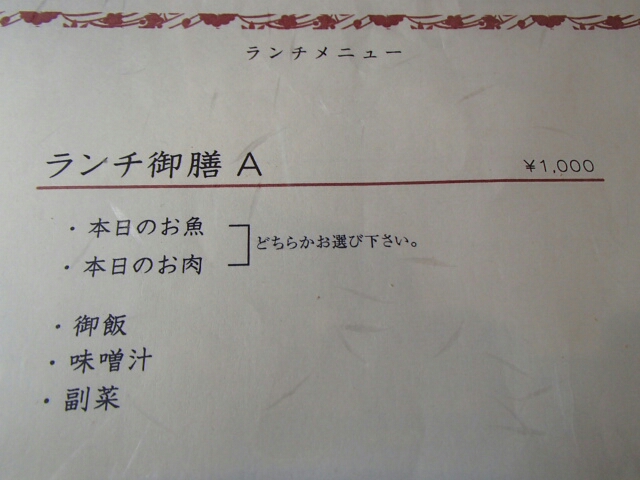 ランチメニュー
ランチ御膳 A ¥1,000
・本日のお魚
・本日のお肉
どちらかお選び下さい。
・御飯
・味噌汁
・副菜